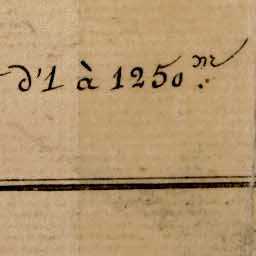 d'1 à 1250.m